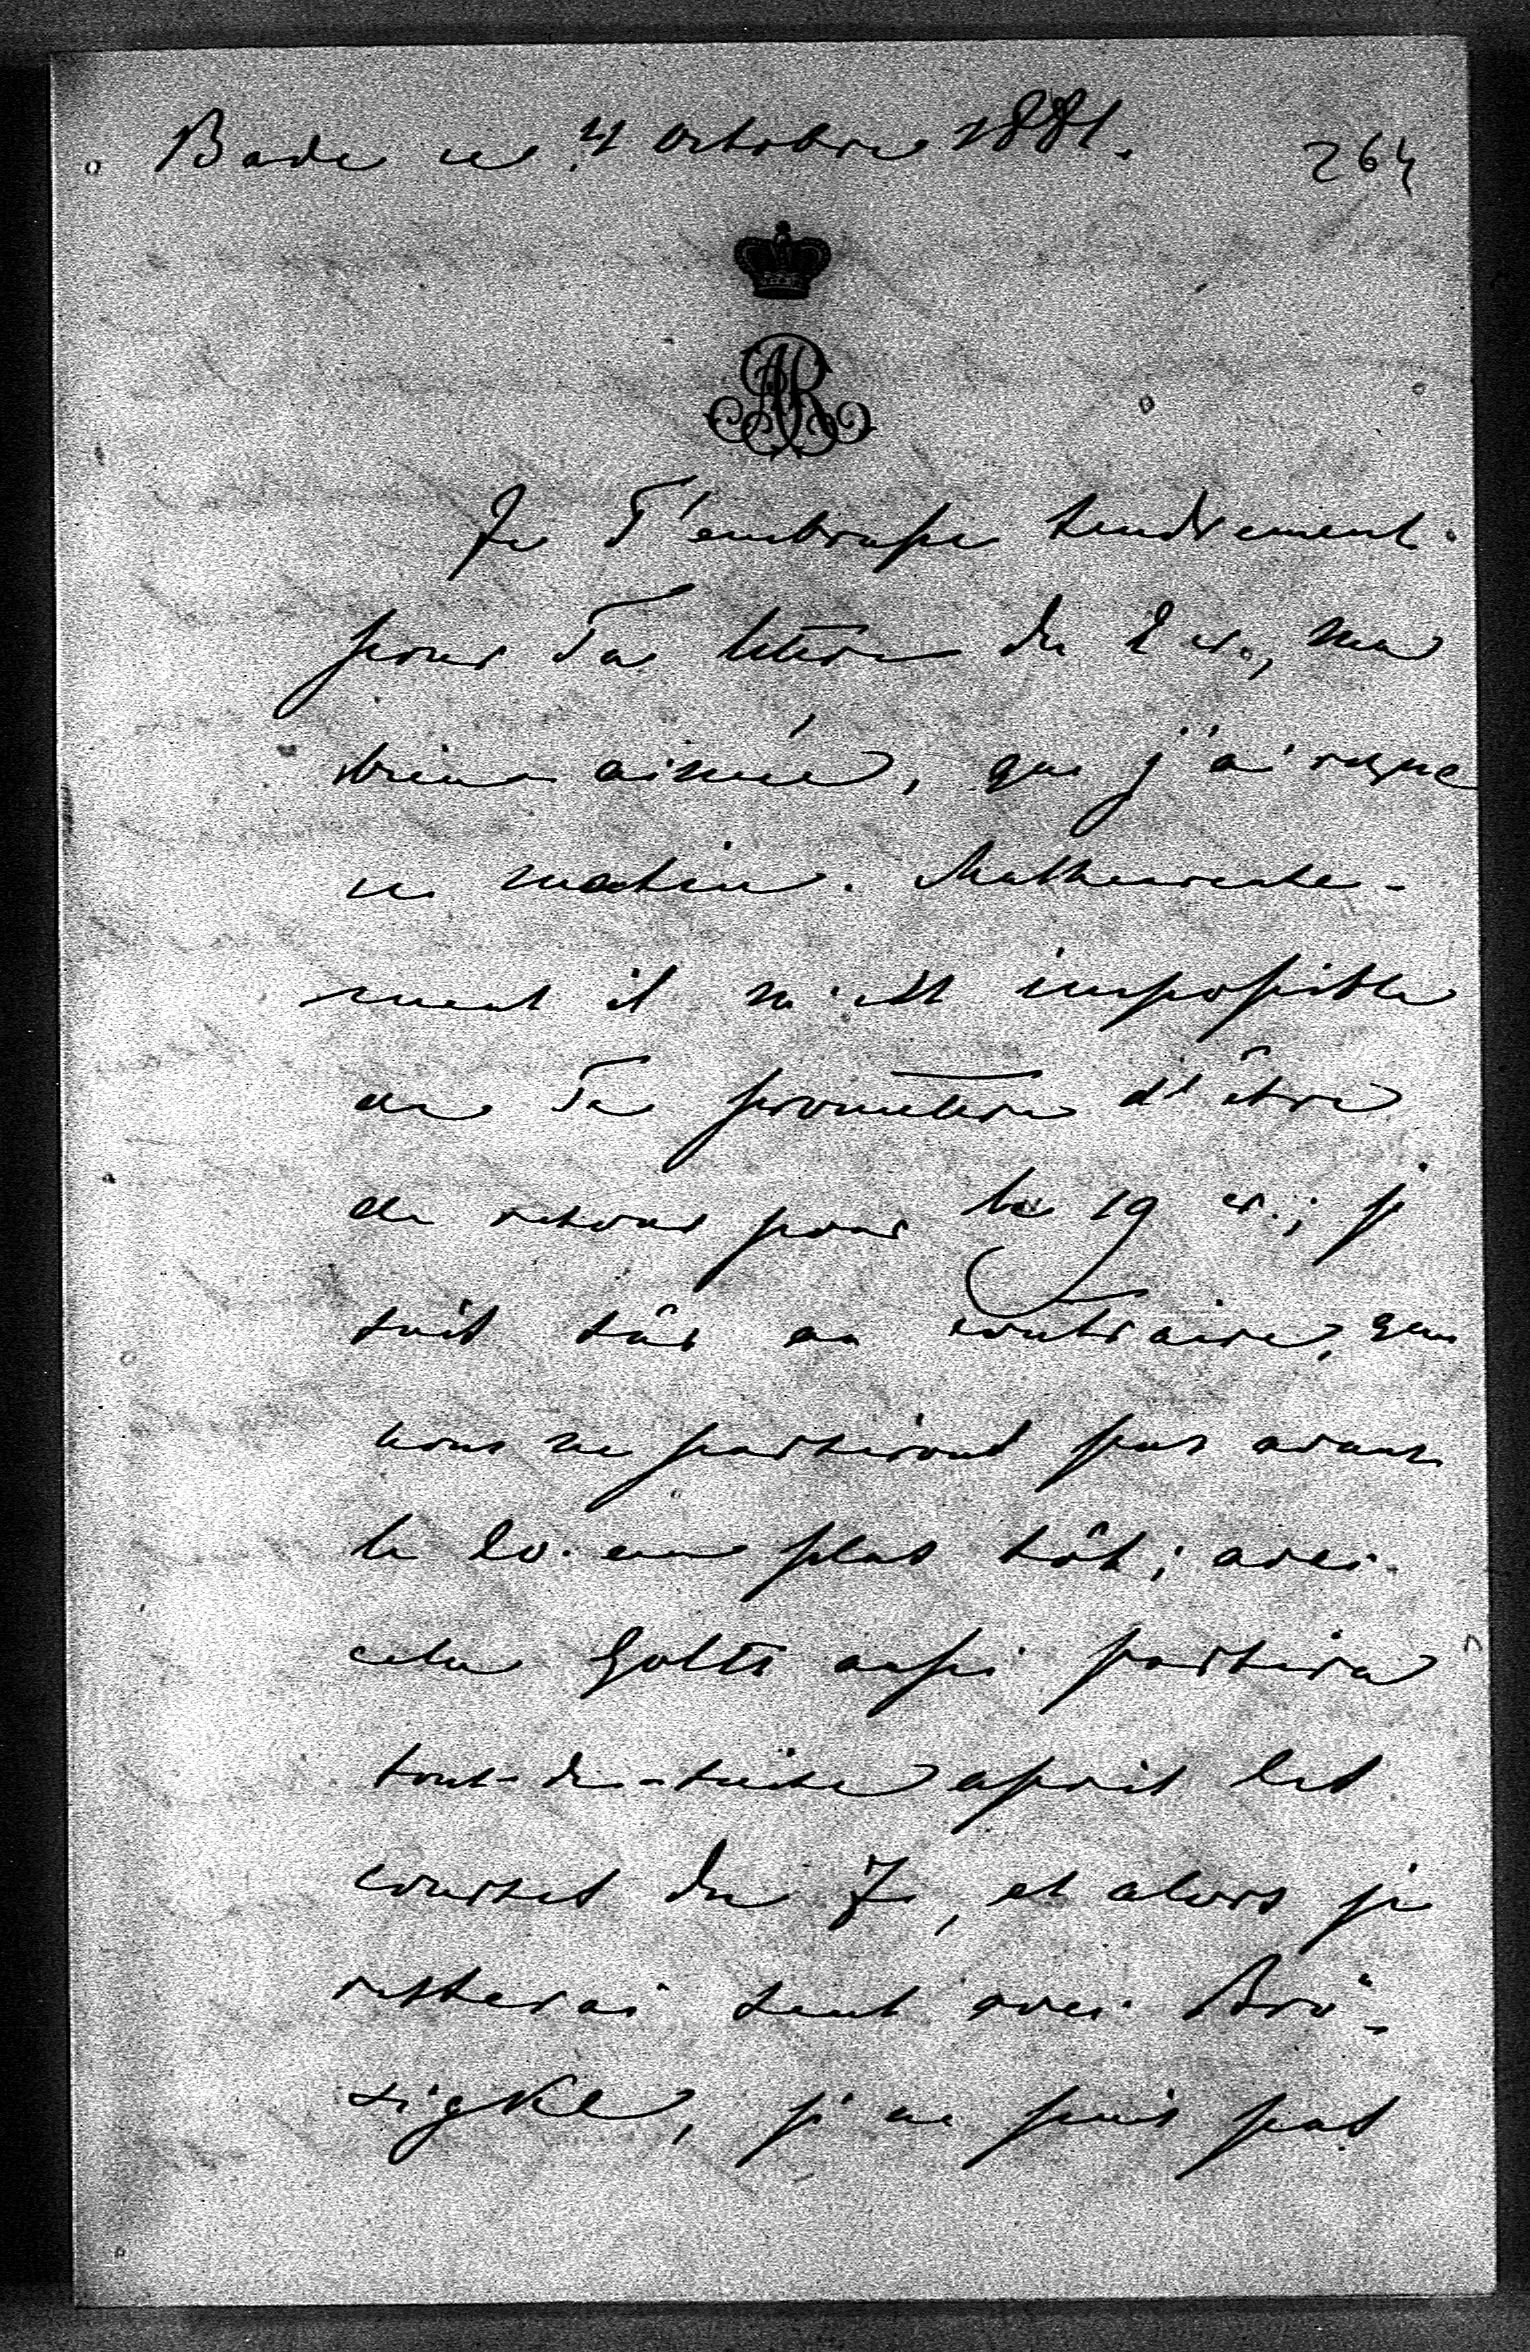 Bade ce 4 Octobre 1881.
264
AR
Je T'embrasse tendrement
pour Ta lettre du 2 cr., ma
bien aimée, que j'ai reçue
ce matin. Malheureuse-
ment il m'est impossible
de Te promettre d'être
de retour pour le 19 cr.; je
suis sûr au contraire, que
nous ne partirons pas avant
le 20. au plus tôt; avec
cela Goltz aussi partira
tout-de-suite après les
courses du 7, et alors je
resterai seul avec Brö-
sigke, je ne puis pas